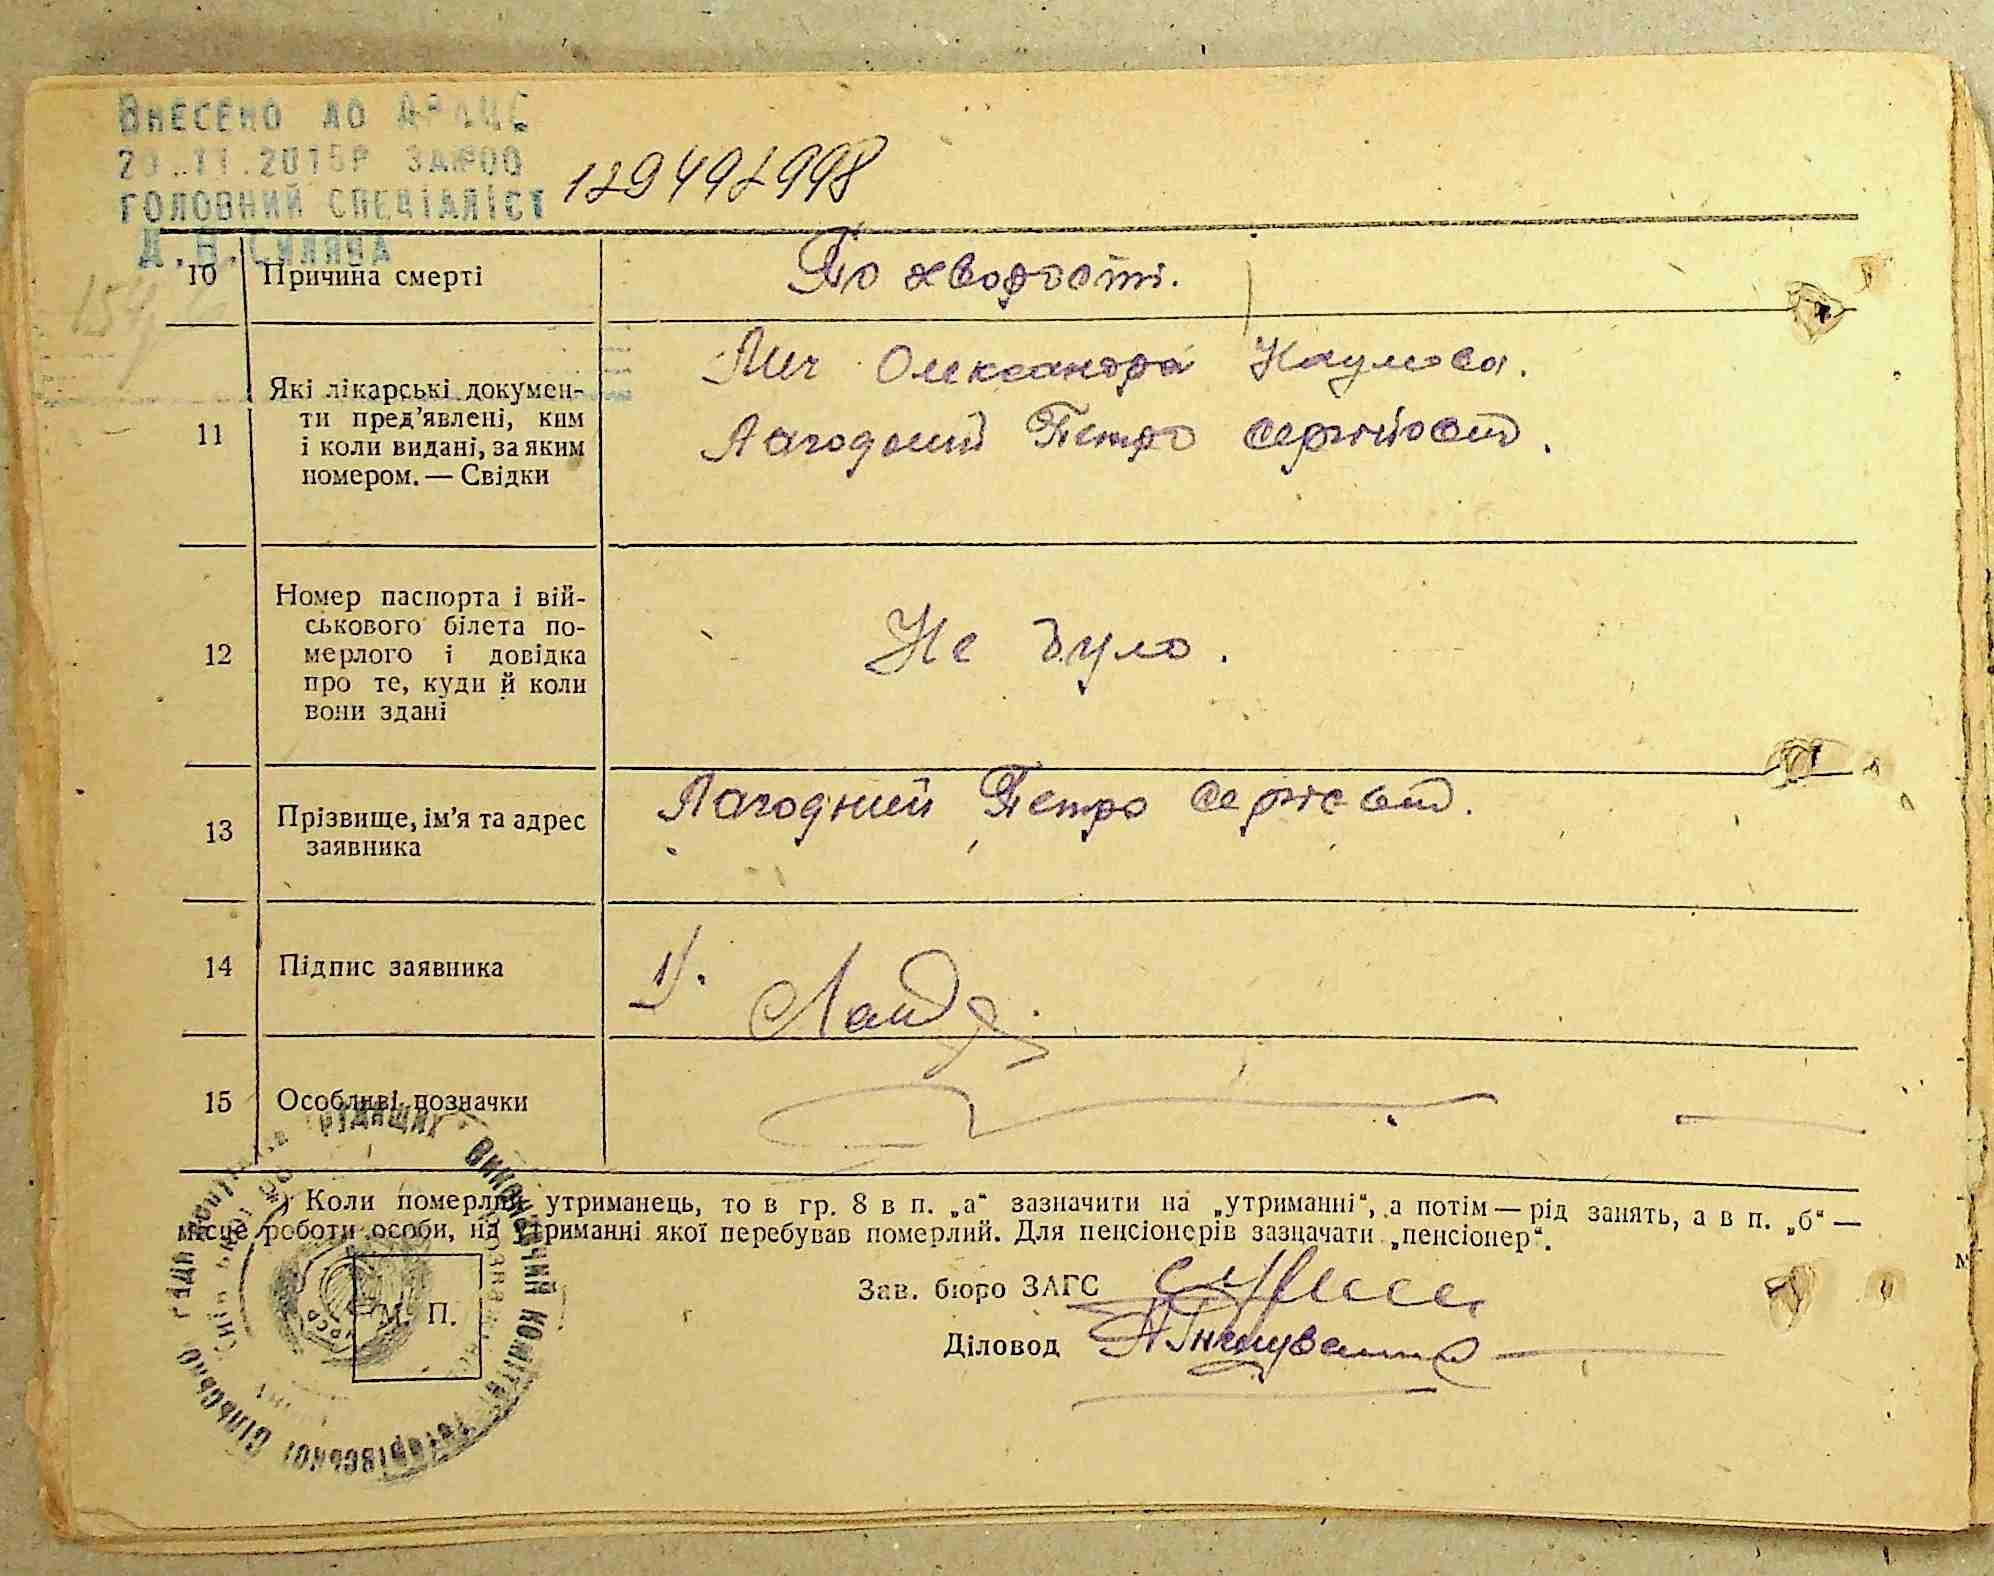 ВНЕСЕНО ДО ДРАЦС
20.11.2015Р ЗА №00
ГОЛОВНИЙ СПЕЦІАЛІСТ
Д.В.СИЛЯВА
10 Причина смерті По хворості.
11 Які лікарські докумен-
ти пред’явлені, ким
і коли видані, за яким
номером. — Свідки
Олександра Наумова.
Лагодний Петро Сергійович.
12 Номер паспорта і вій-
ськового білета по-
мерлого і довідка
про те, куди й коли
вони здані
Не було.
13 Прізвище, ім’я та адрес
заявника
Лагодний Петро Сергієвич.
14 Підпис заявника 1).
15 Особливі позначки
*) Коли померлий утриманець, то в гр. 8 в п. „а“ зазначити на „утриманні“, а потім — рід занять, а в п. „б“ —
місце роботи особи, на утриманні якої перебував померлий. Для пенсіонерів зазначати „пенсіонер“.
Зав. бюро ЗАГС
М. П.
Діловод
ВИКОНАВЧИЙ КОМІТЕТ
СІЛЬСЬКОЇ РАДИ ДЕПУТАТІВ ТРУДЯЩИХ
УРСР